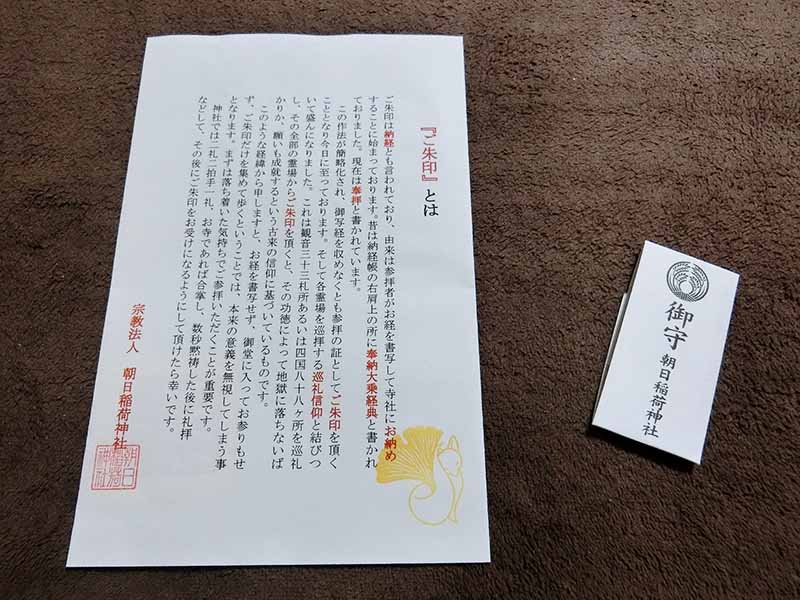 『ご朱印』とは
ご朱印は納経とも言われており、由来は参拝者がお経を書写して寺社にお納め
することに始まっております。昔は納経帳の右肩上の所に奉納大乗経典と書かれ
ておりました。現在は奉拝と書かれています。
この作法が簡略化され、御写経を収めなくとも参拝の証としてご朱印を頂く
こととなり今日に至っております。そして各霊場を巡拝する巡礼信仰と結びつ
いて盛んになりました。これは観音三十三札所あるいは四国八十八ヶ所を巡礼
し、その全部の霊場からご朱印を頂くと、その功徳によって地獄に落ちないば
かりか、願いも成就するという古来の信仰に基づいているものです。
このような経緯から申しますと、お経を書写せず、御堂に入ってお参りもせ
ず、ご朱印だけを集めて歩くということでは、本来の意義を無視してしまう事
となります。まずは落ち着いた気持ちでご参拝いただくことが重要です。
神社では二礼二拍手一礼、お寺であれば合掌し、数秒黙祷した後に礼拝
などして、その後にご朱印をお受けになるようにして頂けたら幸いです。
宗教法人 朝日稲荷神社
朝日
稲荷
神社
御守 朝日稲荷神社